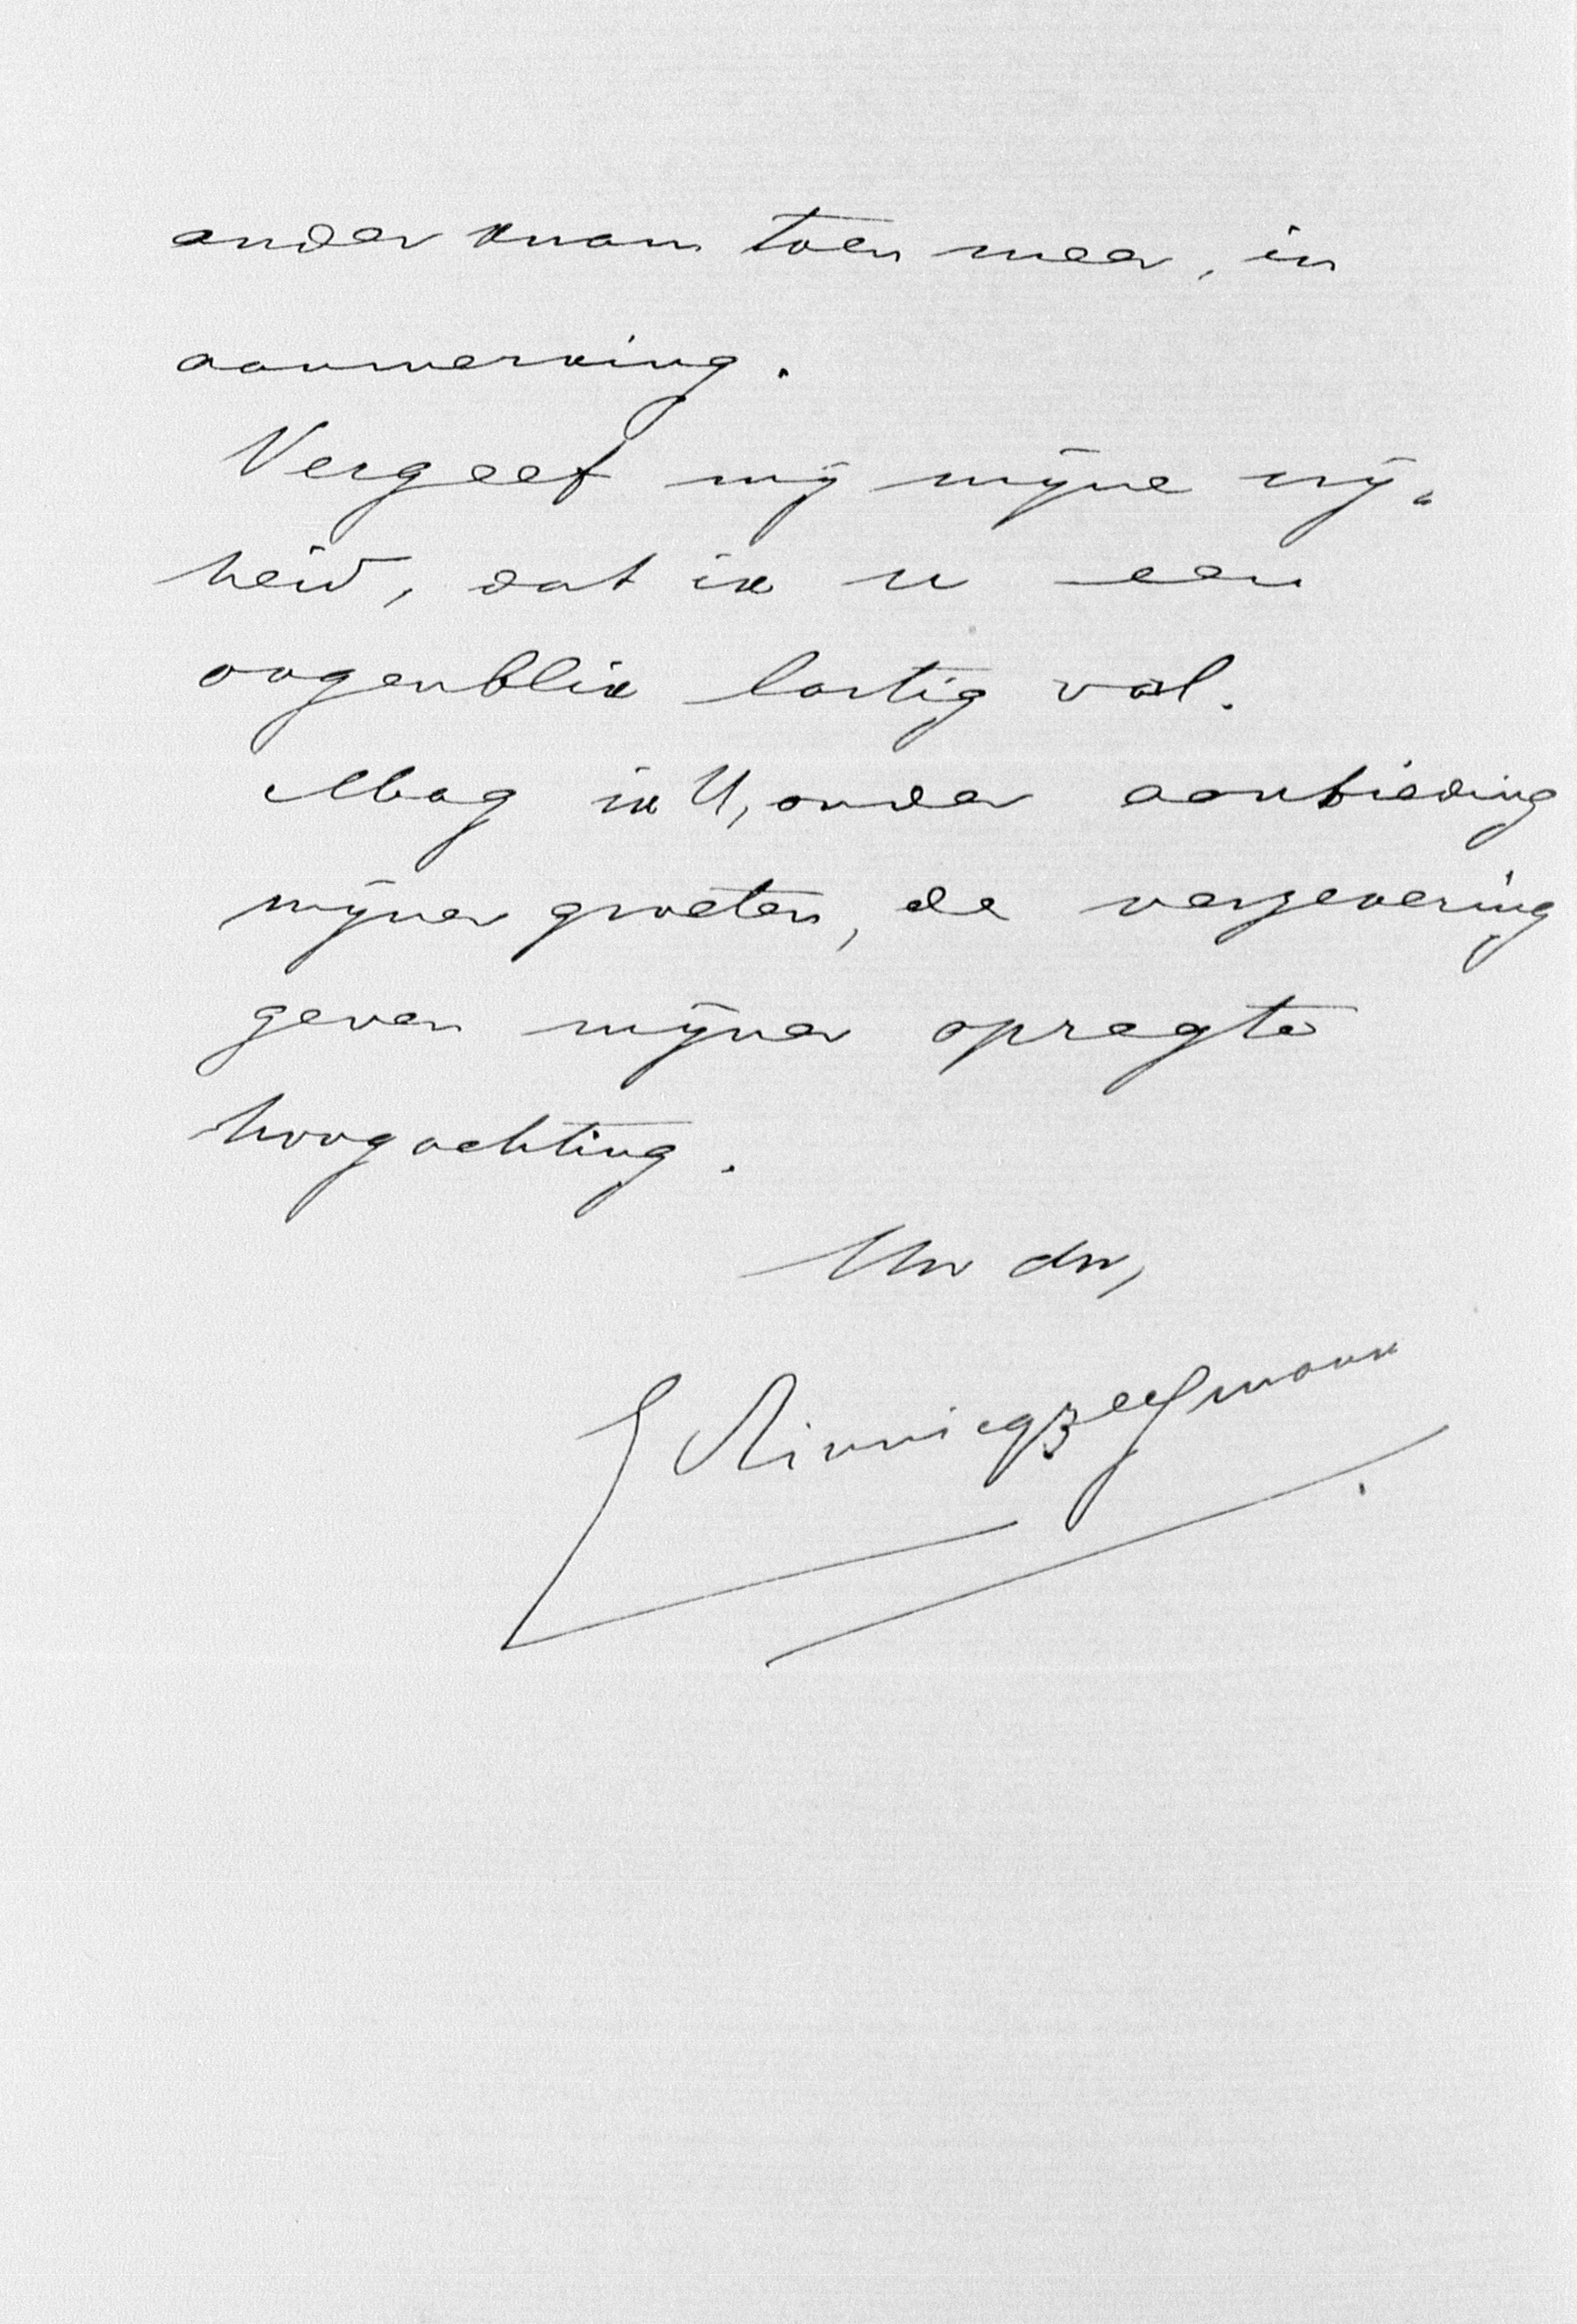 ander kwam toen meer, in
aanmerking.
Vergeef mij mijne vrij-
heid, dat ik u een
oogenblik lastig val.
Mag ik U, onder aanbieding
mijner groeten, de verzekering
geven mijner opregte
hoogachting.
Uw dw,